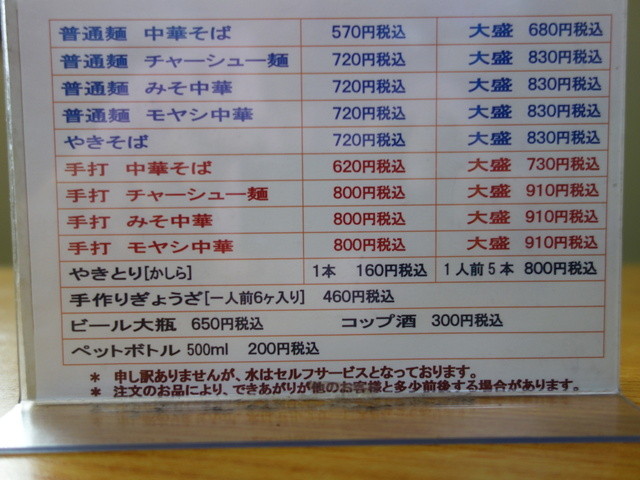 普通麺 中華そば 570円税込 大盛 680円税込
普通麺 チャーシュー麺 720円税込 大盛 830円税込
普通麺 みそ中華 720円税込 大盛 830円税込
普通麺 モヤシ中華 720円税込 大盛 830円税込
やきそば 720円税込 大盛 830円税込
手打 中華そば 620円税込 大盛 730円税込
手打 チャーシュー麺 800円税込 大盛 910円税込
手打 みそ中華 800円税込 大盛 910円税込
手打 モヤシ中華 800円税込 大盛 910円税込
やきとり[かしら] 1本 160円税込 1人前5本 800円税込
手作りぎょうざ[一人前6ヶ入り] 460円税込
ビール大瓶 650円税込 コップ酒 300円税込
ペットボトル 500ml 200円税込
* 申し訳ありませんが、水はセルフサービスとなっております。
* 注文のお品により、できあがりが他のお客様と多少前後する場合があります。